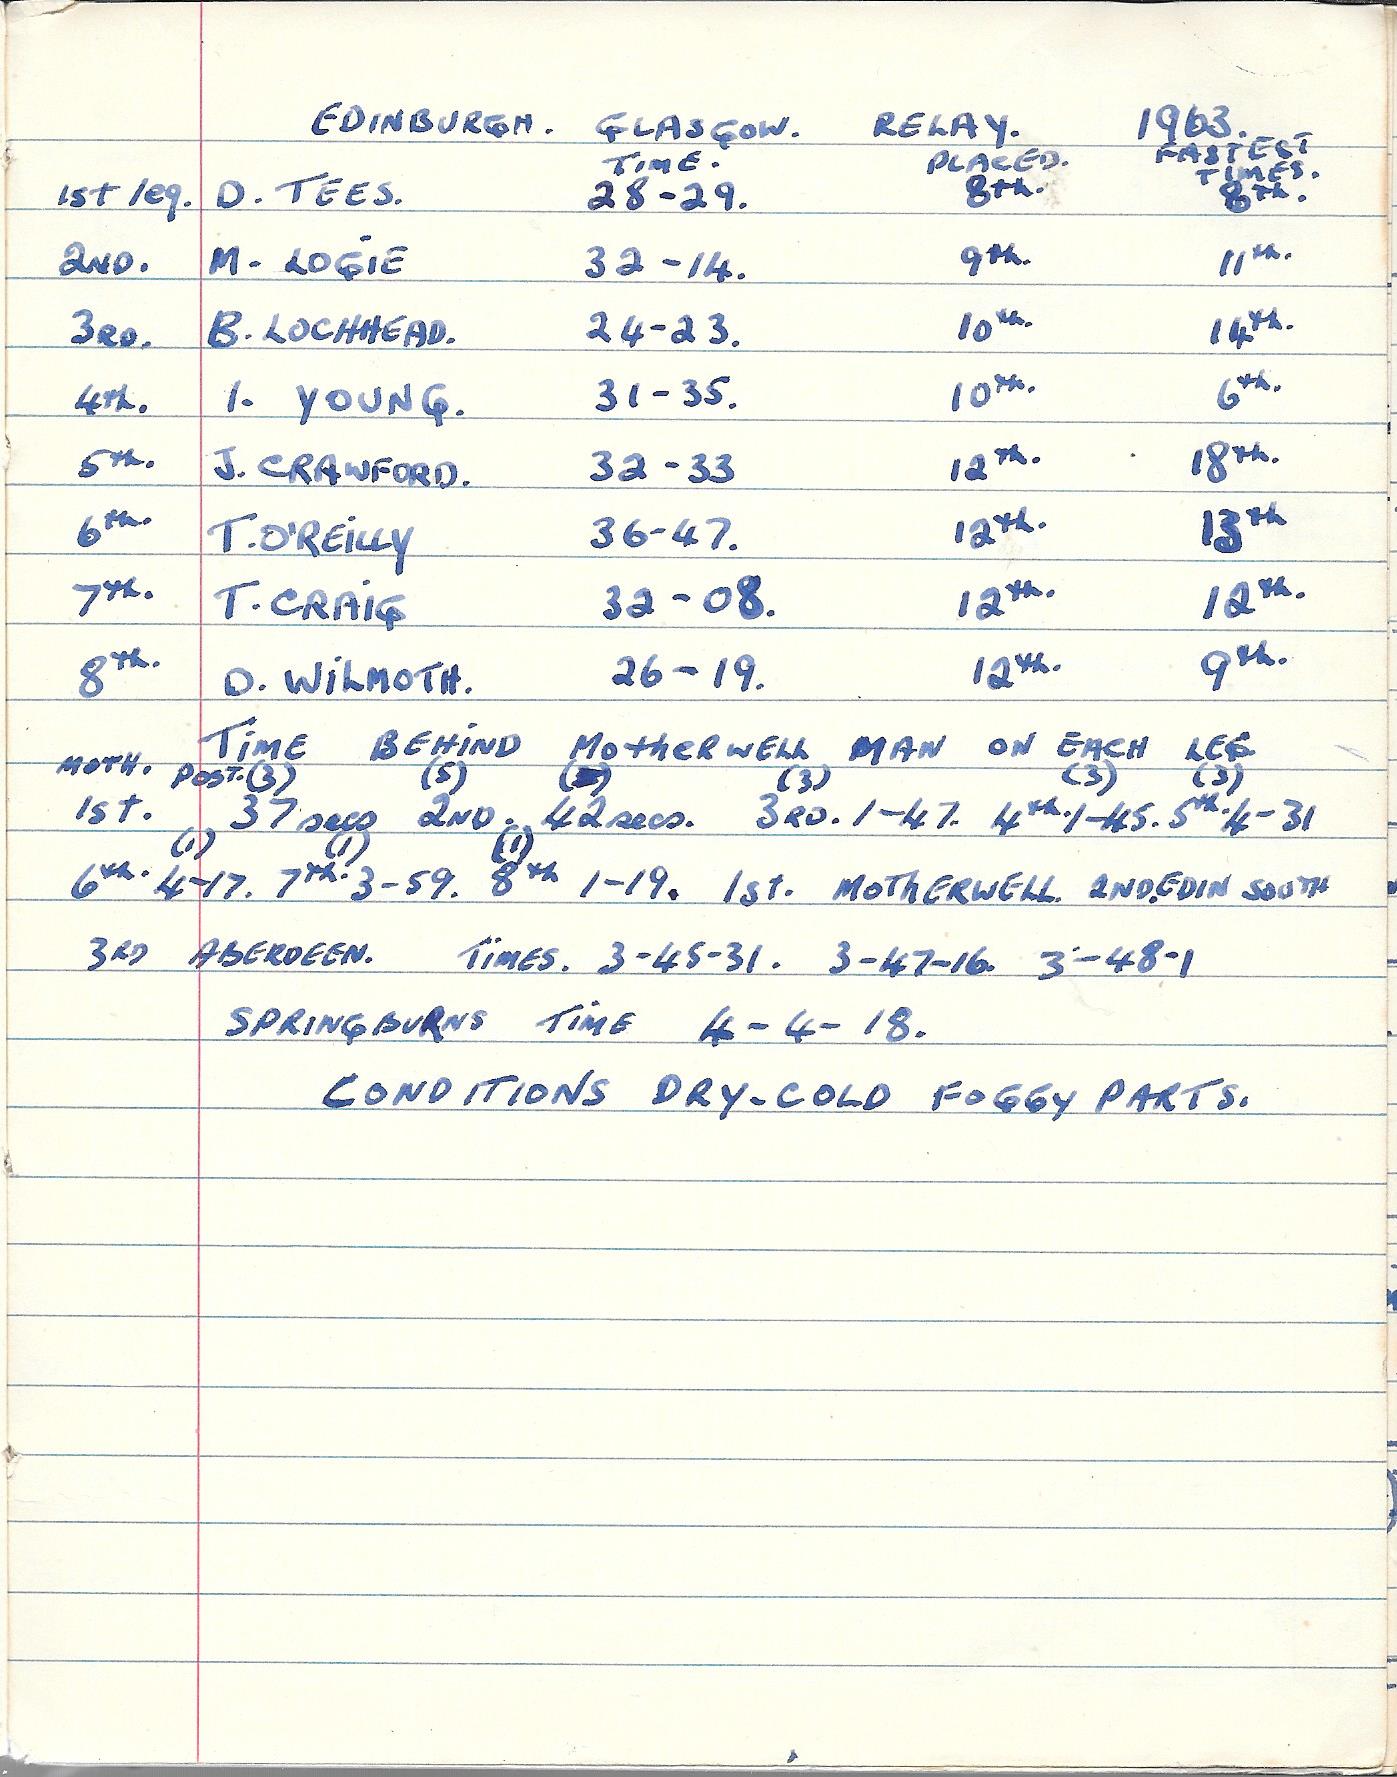 EDINBURGH. GLASGOW. RELAY. 1963.
TIME. PLACED. FASTEST
TIMES.
1st leg. D. TEES. 28-29. 8th. 8th.
2ND. M. LOGIE 32-14. 9th. 11th.
3RD. B. LOCHHEAD. 24-23. 10th. 14th.
4th. I. YOUNG. 31-35. 10th. 6th.
5th. J. CRAWFORD. 32-33 12th. 18th.
6th. T. O'REILLY 36-47. 12th. 13th
7th. T. CRAIG 32-08. 12th. 12th.
8th. D. WILMOTH. 26-19. 12th. 9th.
TIME BEHIND MOTHERWELL MAN ON EACH LEG
MOTH. POST. (3) (5) (3) (3) (3)
1st. 37 secs 2ND. 42 secs. 3RD. 1-47. 4th. 1-45. 5th. 4-31
(1) (1) (1)
6th. 4-17. 7th. 3-59. 8th 1-19. 1st. MOTHERWELL. 2ND. EDIN SOUTH
3RD ABERDEEN. TIMES. 3-45-31. 3-47-16. 3-48-1
SPRINGBURNS TIME 4-4-18.
CONDITIONS DRY-COLD FOGGY PARTS.